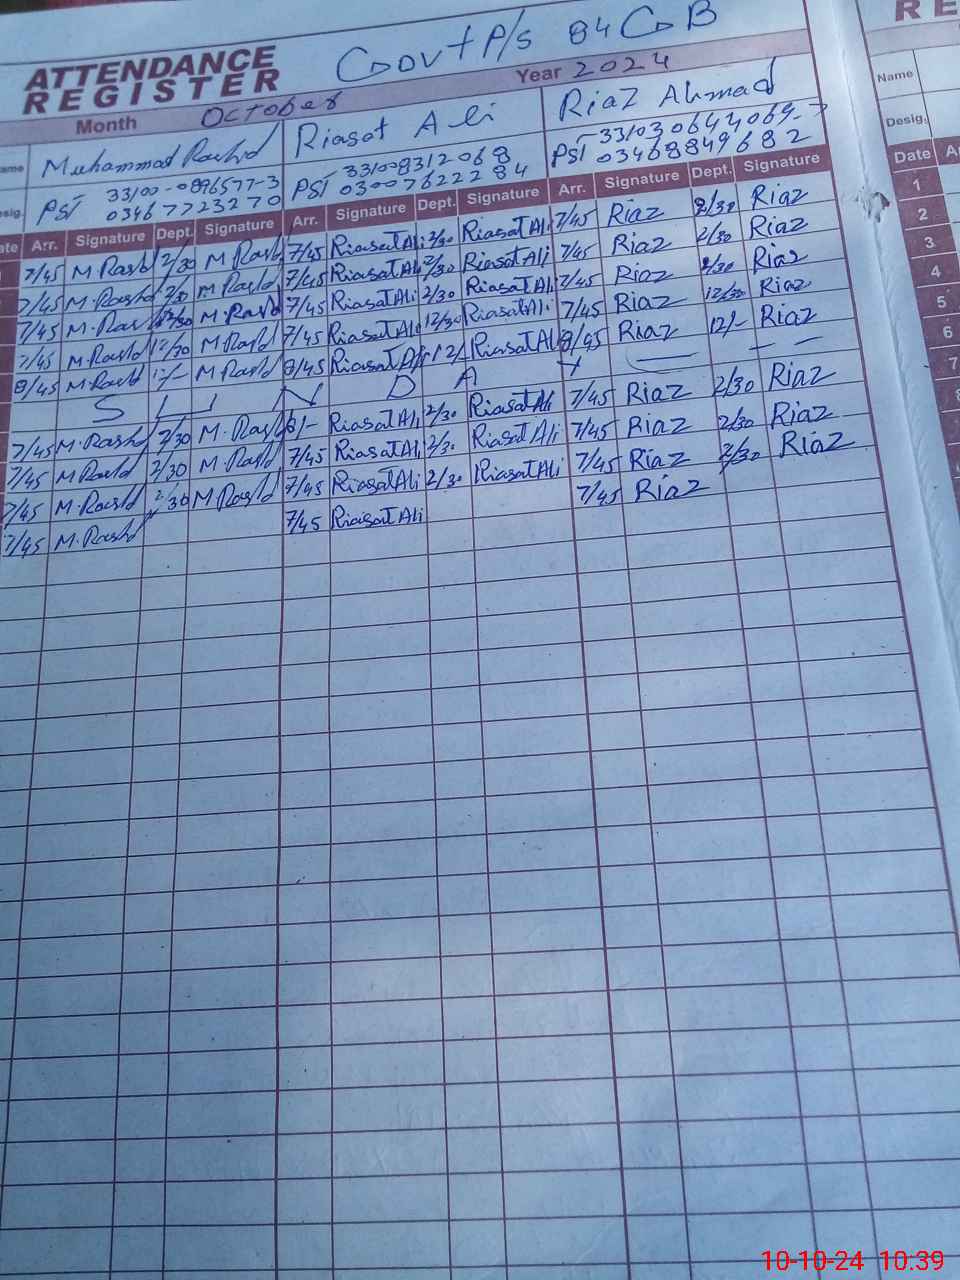 Govt P/s 84 G B
ATTENDANCE REGISTER
Month October Year 2024
Name Muhammad Rashid Riasat Ali Riaz Ahmad
Desig. PST 33100-0896577-3 PST 331008312068 PST 331030644069-7
03467723270 03007622284 03468849682
Date Arr. Signature Dept. Signature Arr. Signature Dept. Signature Arr. Signature Dept. Signature
7/45 M.Rashd 2/30 M Rashd 7/45 Riasat Ali 2/30 Riasat Ali 7/45 Riaz 2/30 Riaz
7/45 M.Rashd 2/30 M Rashd 7/45 Riasat Ali 2/30 Riasat Ali 7/45 Riaz 2/30 Riaz
7/45 M.Rashd M.Rashd 7/45 Riasat Ali 2/30 Riasat Ali 7/45 Riaz 2/30 Riaz
7/45 M.Rashd 12/30 M Rashd 7/45 Riasat Ali 12/30 Riasat Ali 7/45 Riaz 12/30 Riaz
8/45 M.Rashd 12/- M Rashd 8/45 Riasat Ali 12/- Riasat Ali 8/45 Riaz 12/- Riaz
S U N D A Y — — —
7/45 M.Rashd 2/30 M.Rashd 8/- Riasat Ali 2/30 Riasat Ali 7/45 Riaz 2/30 Riaz
7/45 M.Rashd 2/30 M.Rashd 7/45 Riasat Ali 2/30 Riasat Ali 7/45 Riaz 2/30 Riaz
7/45 M.Rashd 2/30 M Rashd 7/45 Riasat Ali 2/30 Riasat Ali 7/45 Riaz 2/30 Riaz
7/45 M.Rashd 7/45 Riasat Ali 7/45 Riaz
R E
Name
Desig.
Date
1
2
3
4
5
6
7
8
10-10-24 10:39